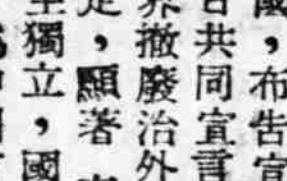 國，布告宣
日共同宣言
界撤廢治外
定，顯著
獨立，國